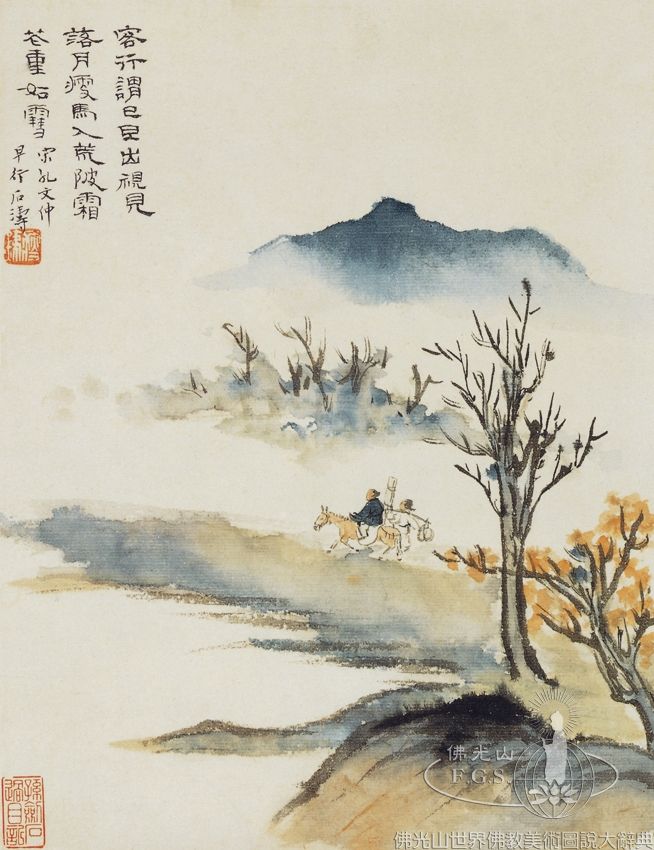 客行謂已旦出視見
落月瘦馬入荒陂霜
花重如雪
宋孔文仲
早行石濤
佛光山
F.G.S.
佛光山世界佛教美術圖說大辭典